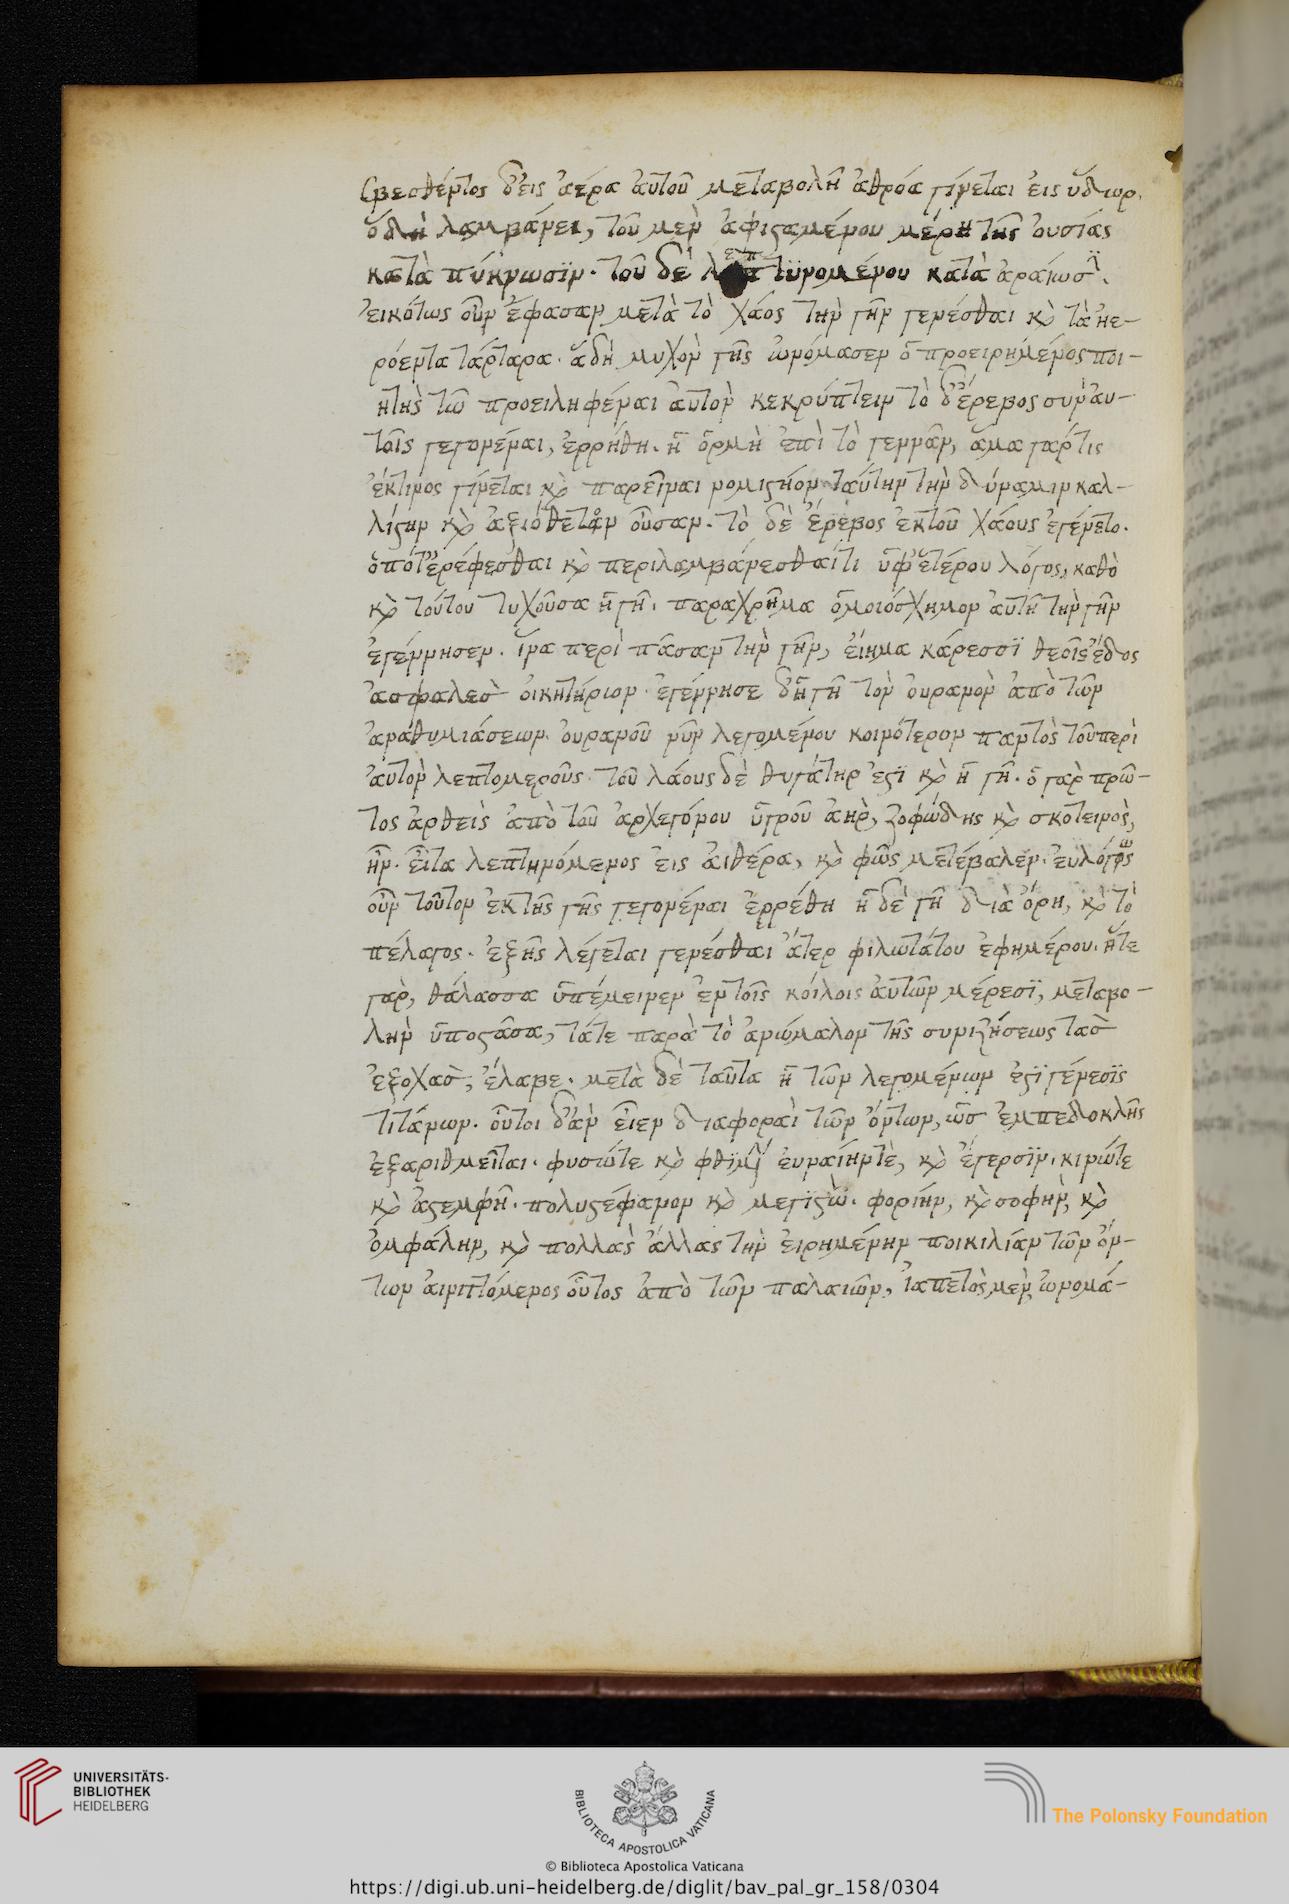 Σβεσθέντος δ' εἰς ἀέρα αὐτοῦ μεταβολῆ ἀθρόα γίνεται εἰς ὕδωρ.
ὃ δὴ λαμβάνει, τοῦ μεν ἀφισταμένου μέρη τῆς οὐσίας
κατὰ πύκνωσϊν. τοῦ δὲ λεπτϋνομένου κατὰ ἀραίωσϊν.
εἰκότως οὖν ἔφασαν μετὰ τὸ χάος τὴν γῆν γενέσθαι κὶ τὰ ἠε-
ρόεντα τάρταρα. ἃ δὴ μυχὸν γῆς ὠνόμασεν ὁ προειρημένος ποι-
ητὴς τῶ προειληφέναι ἀυτὸν κεκρύπτειν τὸ δ' ἔρεβος συν ἀυ-
τοῖς γεγονέναι, ἐρρήθη. ἡ ὁρμὴ ἐπὶ τὸ γεννᾶν, ἅμα γάρ τις
ἔκτινος γίνεται κὶ παρεῖναι νομιστέον ταύτην τὴν δύναμιν καλ-
λίστην κὶ ἀξιόθετον οὖσαν. τὸ δὲ ἔρεβος ἐκ τοῦ χάους ἐγένετο.
ὁπότ' ἐρέφεσθαι κὶ περιλαμβάνεσθαί τι ὑφ' ἑτέρου λόγος, καθὸ
κὶ τούτου τυχοῦσα ἡ γῆ. παραχρῆμα ὁμοιόσχημον ἀυτῆ τὴν γῆν
ἐγέννησεν. ἵνα περὶ πᾶσαν τὴν γῆν, εἵημα κάρεσσϊ θεοῖς ἕδος
ἀσφαλεσ οἰκητήριον. ἐγέννησε δ' ἡ γῆ τὸν οὐρανὸν ἀπὸ τῶν
ἀναθυμιάσεων. οὐρανοῦ νῦν λεγομένου κοινότερον παντὸς τοῦ περὶ
ἀυτὸν λεπτομεροῦς. τοῦ λάους δὲ θυγάτηρ ἐστϊ κὶ ἡ γῆ. ὁ γαρ πρῶ-
τος ἀρθεὶς ἀπὸ τοῦ ἀρχεγόνου ὑγροῦ ἀηρ, ζοφώδης κὶ σκοτεινος,
ἦν. εἶτα λεπτηνόμενος εἰς ἀιθέρα, κὶ φῶς μετέβαλεν. εὐλόγως
οὖν τοῦτον ἐκ τῆς γῆς γεγονέναι ἐρρέθη ἡ δὲ γῆ διὰ ὄρη, κὶ τὸ
πέλαγος. ἑξῆς λέγεται γενέσθαι ἄτερ φιλωτάτου ἐφημένου. ἥτε
γαρ, θάλασσα ὑπέμεινεν ἐν τοῖς κοίλοις ἀυτῶν μέρεσϊ, μεταβο-
λὴν ὑποστᾶσα, τάτε παρὰ τὸ ἀνώμαλον τῆς συνιζήσεως τασ
ἐξοχασ, ἔλαβε. μετὰ δὲ ταῦτα ἡ τῶν λεγομένων ἐστϊ γένεσϊς
τιτάνων. οὗτοι δ' ἀν εἶεν διαφοραὶ τῶν ὄντων, ὡσ ἐμπεδοκλῆς
ἐξαριθμεῖται. φυσιώτε κὶ φθϊμένη ἐυναίηντε, κὶ ἔγερσϊν. κινώτε
κὶ ἀστεμφῆ. πολυστέφανον κὶ μεγϊστὼ. φορίην, κὶ σοφὴν, κὶ
ὀμφάλην, κὶ πολλὰς ἄλλας τὴν εἰρημένην ποικιλίαν τῶν ὄν-
των ἀινιττόμενος οὗτος ἀπὸ τῶν παλαιῶν, ἰαπετὸς μεν, ὠνομά-
UNIVERSITÄTS-
BIBLIOTHEK
HEIDELBERG
BIBLIOTECA APOSTOLICA VATICANA
The Polonsky Foundation
© Biblioteca Apostolica Vaticana
https://digi.ub.uni-heidelberg.de/diglit/bav_pal_gr_158/0304